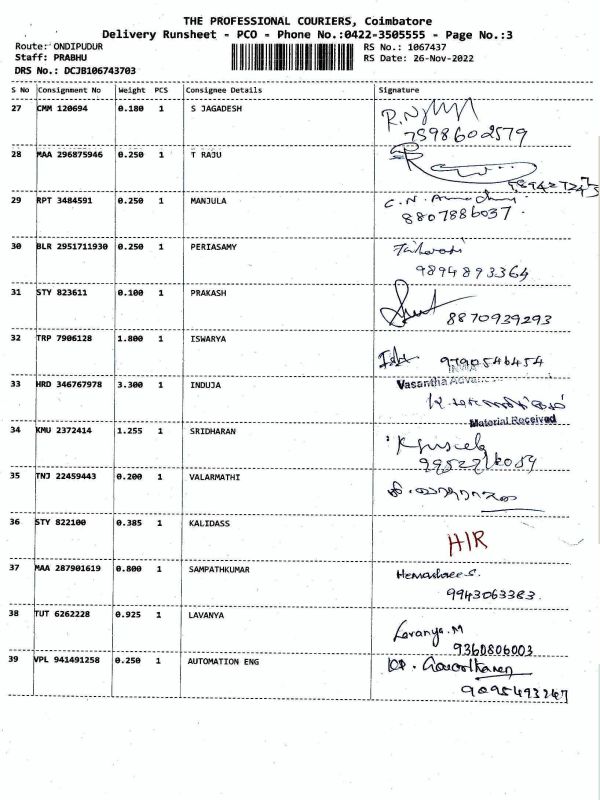 THE PROFESSIONAL COURIERS, Coimbatore
Delivery Runsheet - PCO - Phone No.:0422-3505555 - Page No.:3
Route: ONDIPUDUR RS No.: 1067437
Staff: PRABHU RS Date: 26-Nov-2022
DRS No.: DCJB106743703
S No Consignment No Weight PCS Consignee Details Signature
27 CMM 120694 0.180 1 S JAGADESH
7598602579
28 MAA 296875946 0.250 1 T RAJU
29 RPT 3484591 0.250 1 MANJULA
8807886037.
30 BLR 2951711930 0.250 1 PERIASAMY
9894893364
31 STY 823611 0.100 1 PRAKASH
8870939293
32 TRP 7906128 1.800 1 ISWARYA
9790546454
33 HRD 346767978 3.300 1 INDUJA Vasantha
Material Received
34 KMU 2372414 1.255 1 SRIDHARAN
35 TNJ 22459443 0.200 1 VALARMATHI
36 STY 822100 0.385 1 KALIDASS
H/R
37 MAA 287901619 0.800 1 SAMPATHKUMAR Hemashree S.
9943063383.
38 TUT 6262228 0.925 1 LAVANYA
Lavanya.M
9360806003
39 VPL 941491258 0.250 1 AUTOMATION ENG
9095493247